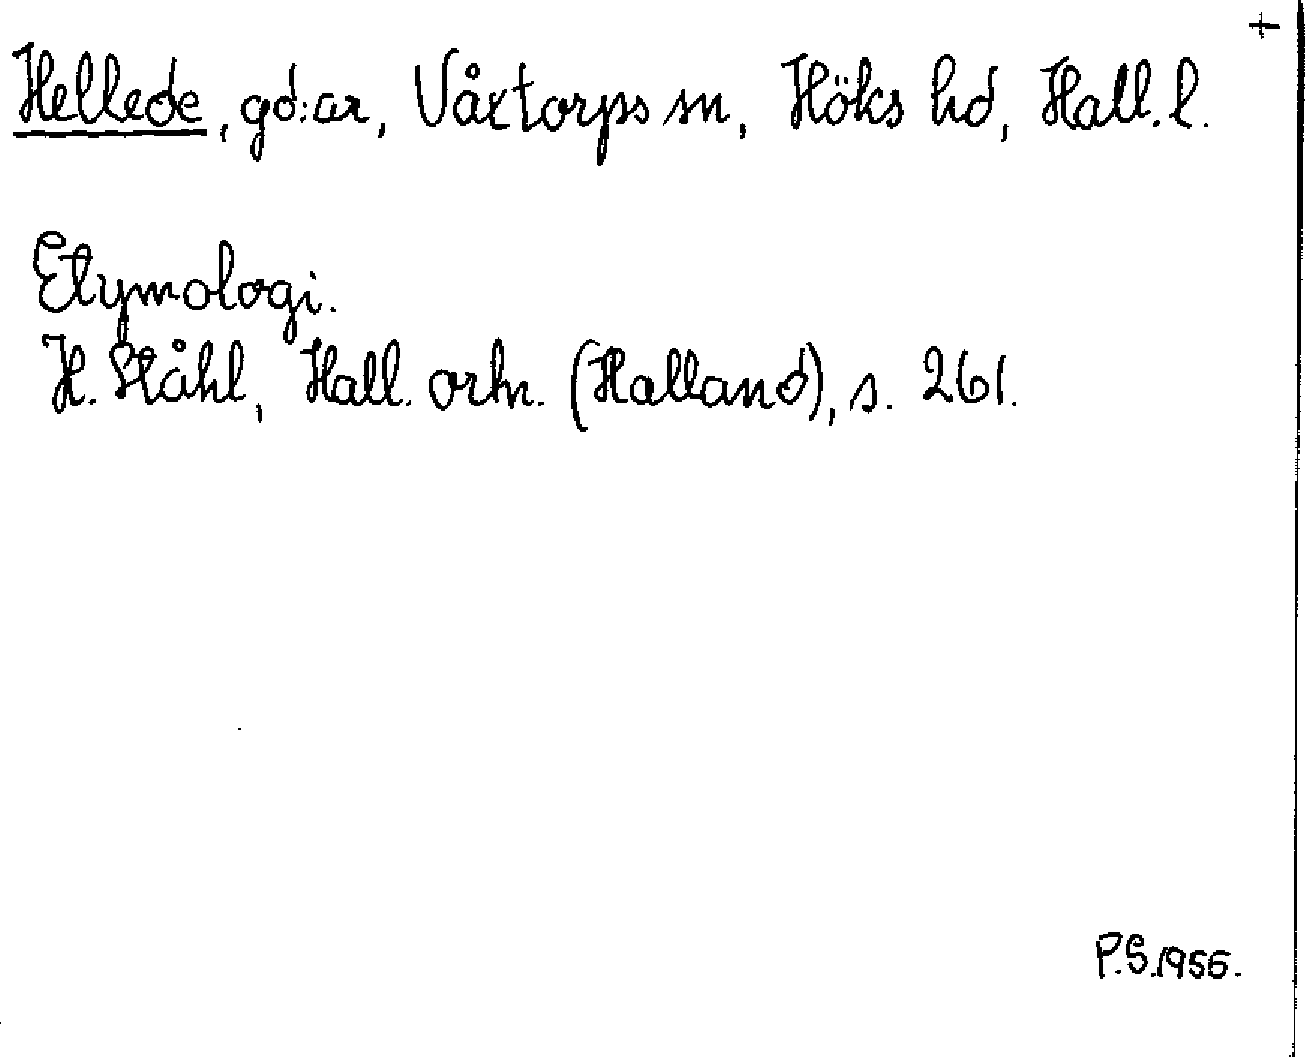 +
Hellede, gd:ar, Våxtorps sn, Höks hd, Hall. l.
Etymologi.
H. Ståhl, Hall. ortn. (Halland), s. 261.
P.S. 1956.